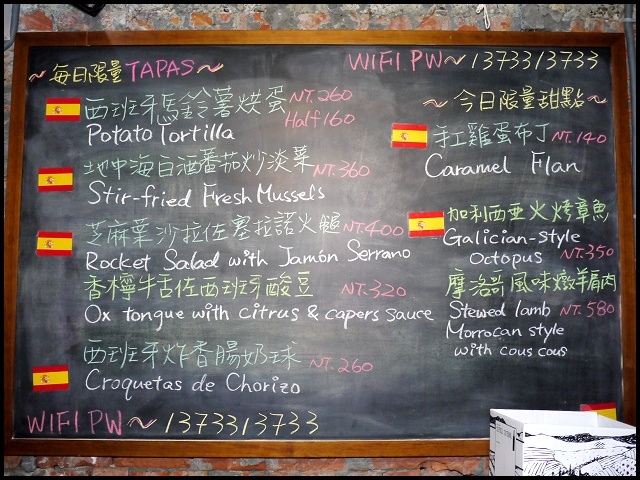 ~每日限量TAPAS~
WIFI PW~1373313733
西班牙馬鈴薯烘蛋 NT.260
Half 160
Potato Tortilla
地中海白酒番茄炒淡菜 NT.360
Stir-fried Fresh Mussels
芝麻葉沙拉佐塞拉諾火腿 NT.400
Rocket Salad with Jamón Serrano
香檸牛舌佐西班牙酸豆 NT.320
Ox tongue with citrus & capers sauce
西班牙炸香腸奶球 NT.260
Croquetas de Chorizo
WIFI PW~1373313733
~今日限量甜點~
手工雞蛋布丁 NT.140
Caramel Flan
加利西亞火烤章魚
Galician-style
Octopus NT.350
摩洛哥風味燉羊肩肉
Stewed lamb NT.580
Morrocan style
with cous cous